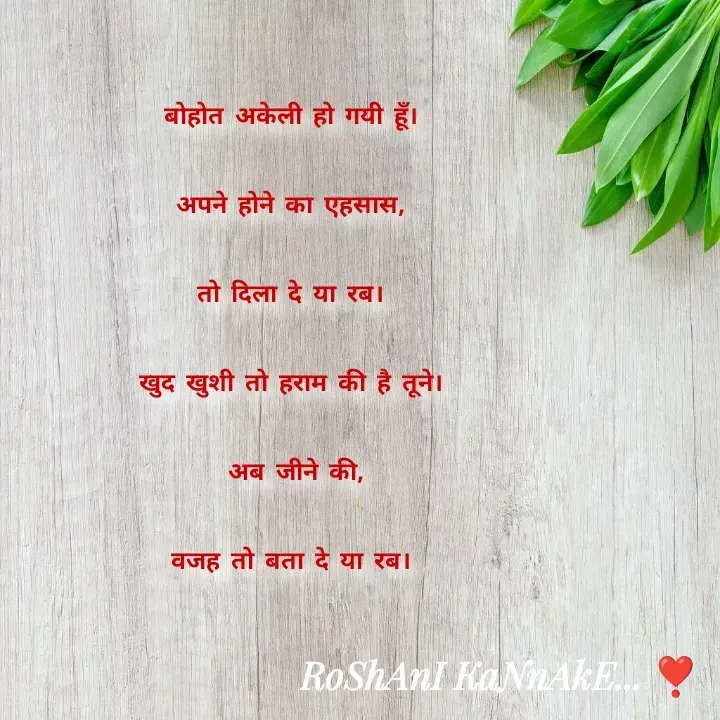 बोहोत अकेली हो गयी हूँ।
अपने होने का एहसास,
तो दिला दे या रब।
खुद खुशी तो हराम की है तूने।
अब जीने की,
वजह तो बता दे या रब।
RoShAnI KaNnAkE... ❣️